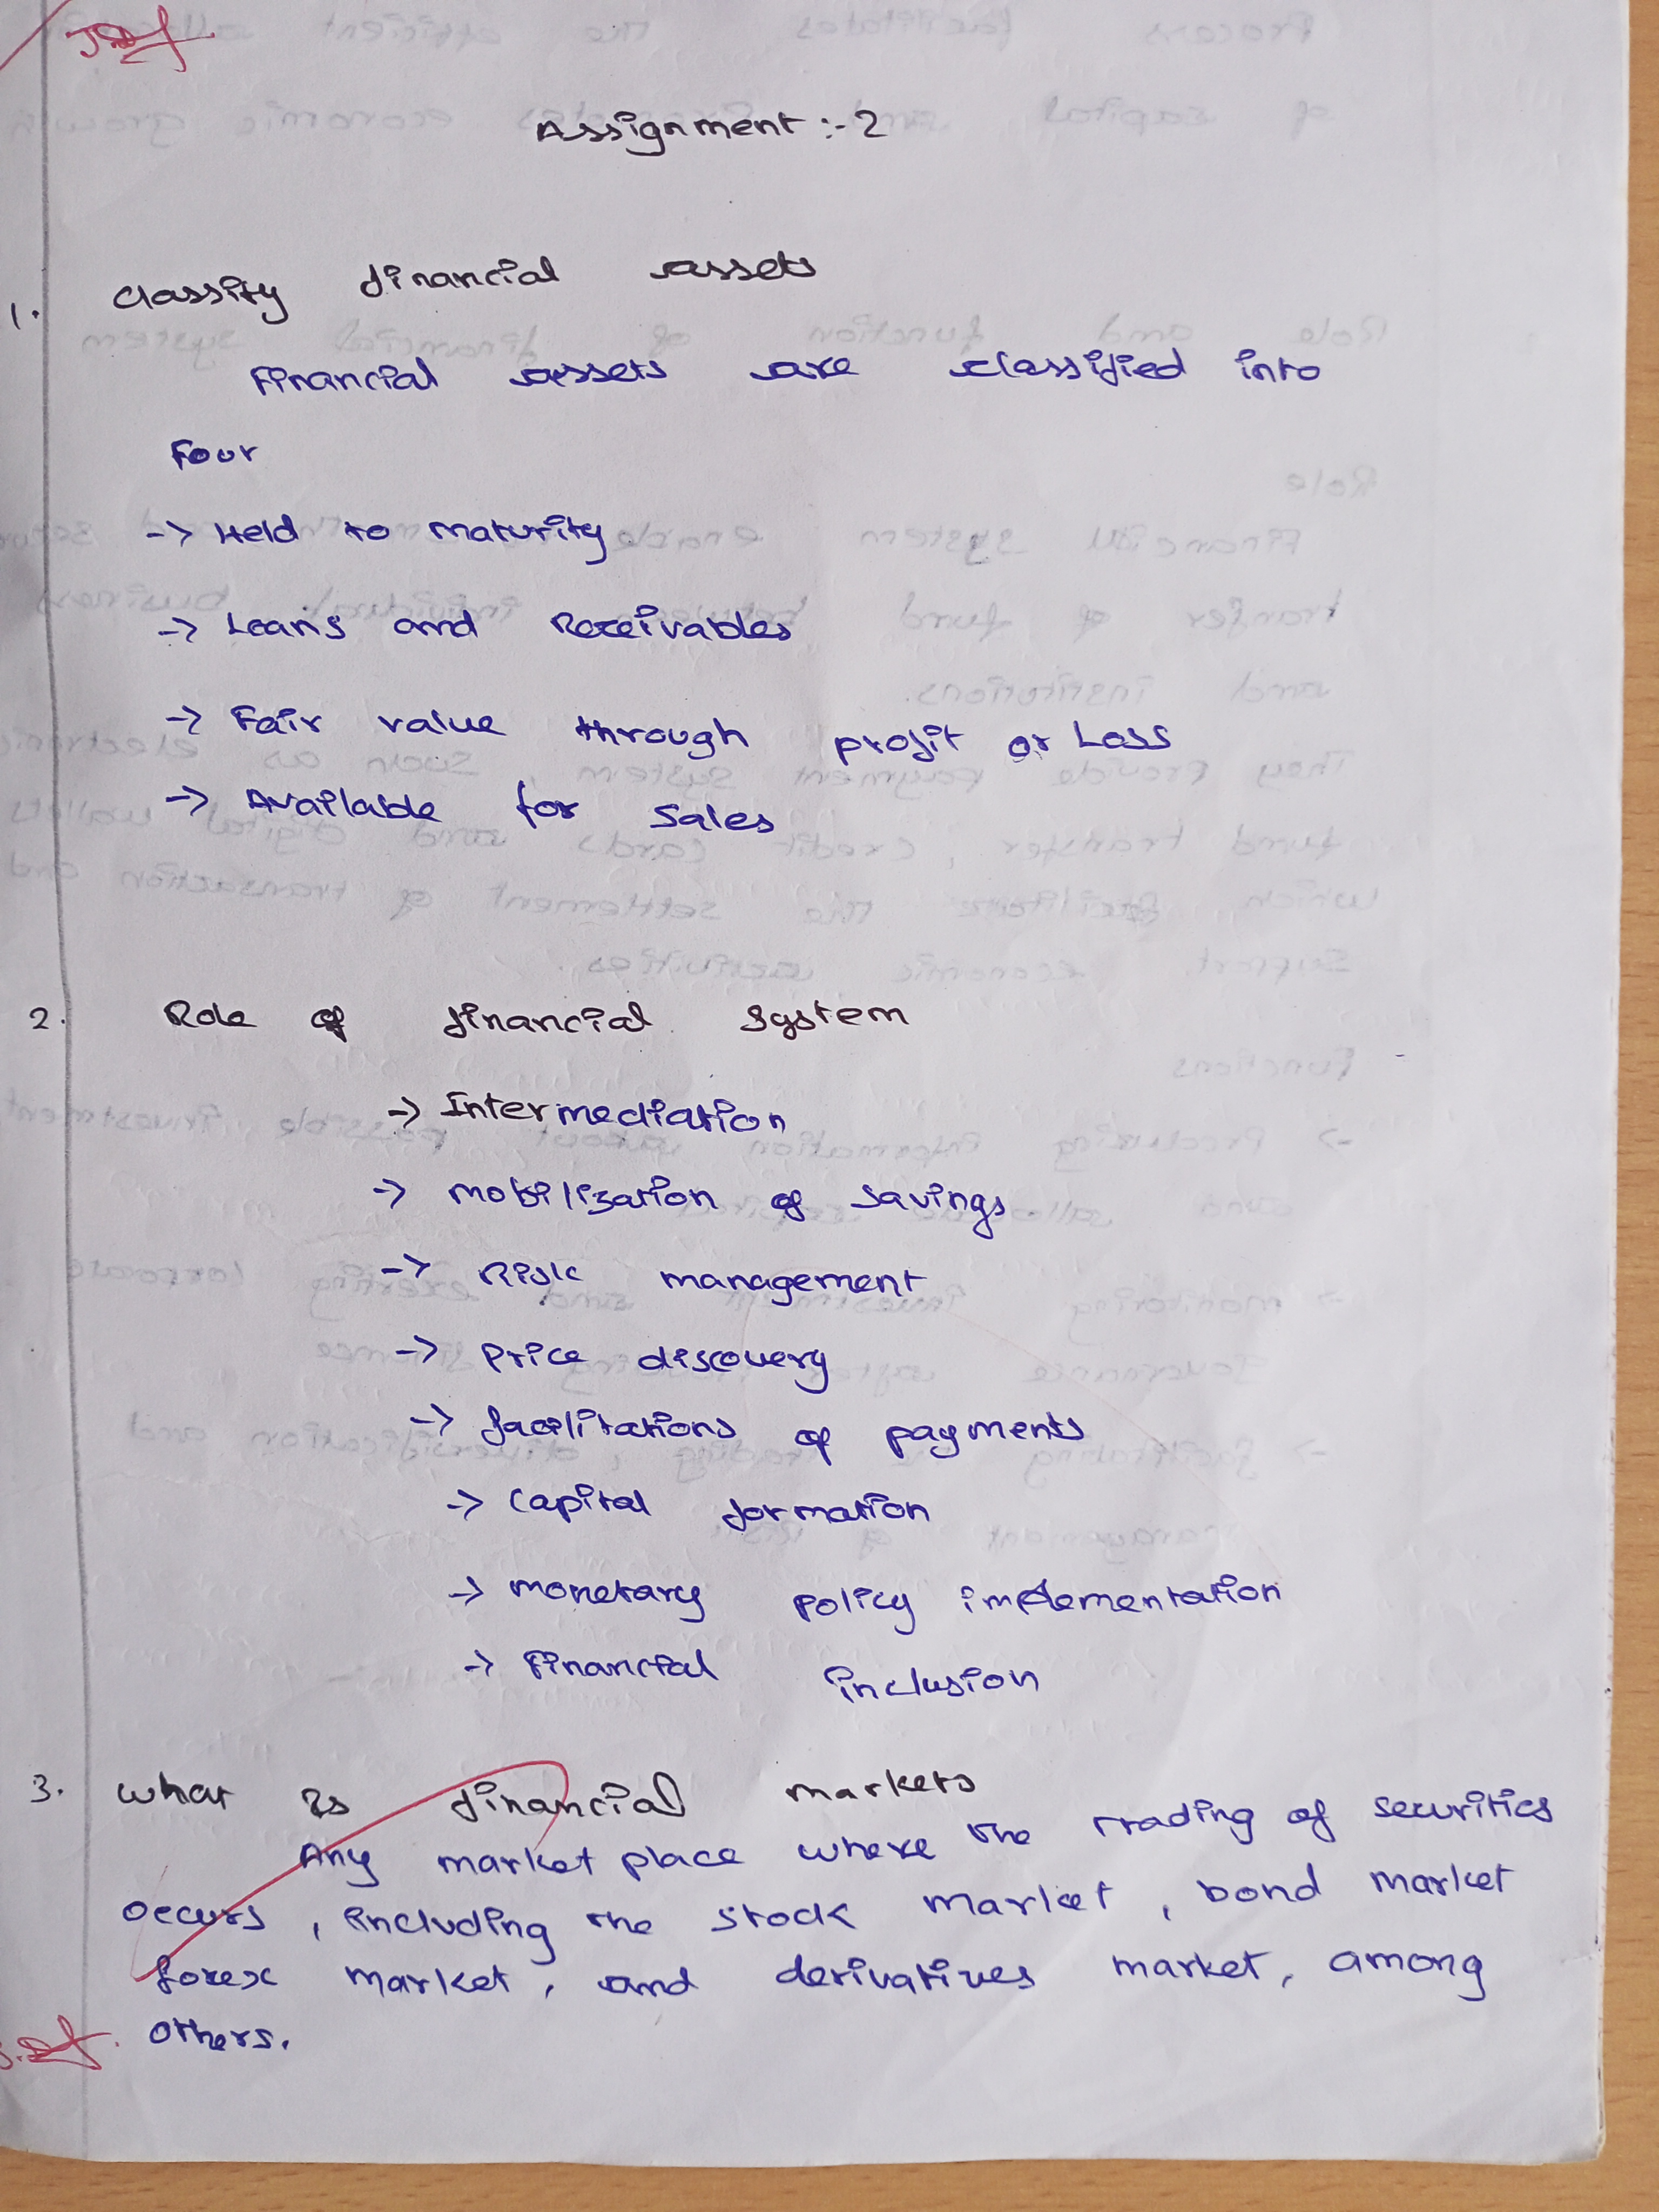 Assignment :- 2
1. Classify financial assets
Financial assets are classified into
Four
-> Held to maturity
-> Loans and Receivables
-> Fair value through profit or Loss
-> Available for Sales
2. Role of financial system
-> Intermediation
-> mobilization of savings
-> Risk management
-> Price discovery
-> facilitations of payments
-> Capital formation
-> monetary policy implementation
-> Financial inclusion
3. What is financial markets
Any market place where the trading of securities
occurs, including the stock market, bond market
forex market, and derivatives market, among
others.